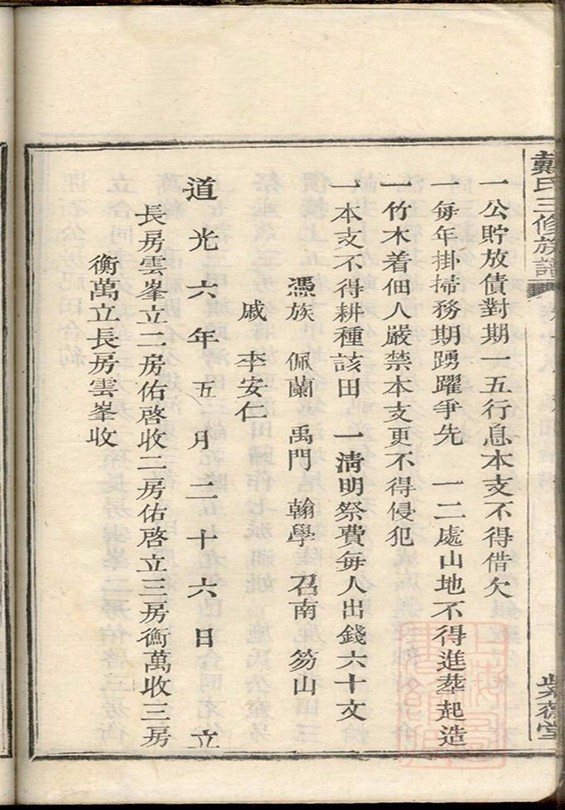 戴氏三修族譜
紫薇堂
一公貯放債對期一五行息本支不得借欠
一每年掛掃務期踴躍爭先　一二處山地不得進葬起造
一竹木着佃人嚴禁本支更不得侵犯
一本支不得耕種該田　一清明祭費每人出錢六十文
憑族　佩蘭　禹門　翰學　召南　笏山
戚　李安仁
道光六年五月二十六日　立
長房雲峯立二房佑啓收二房佑啓立三房衡萬收三房
衡萬立長房雲峯收